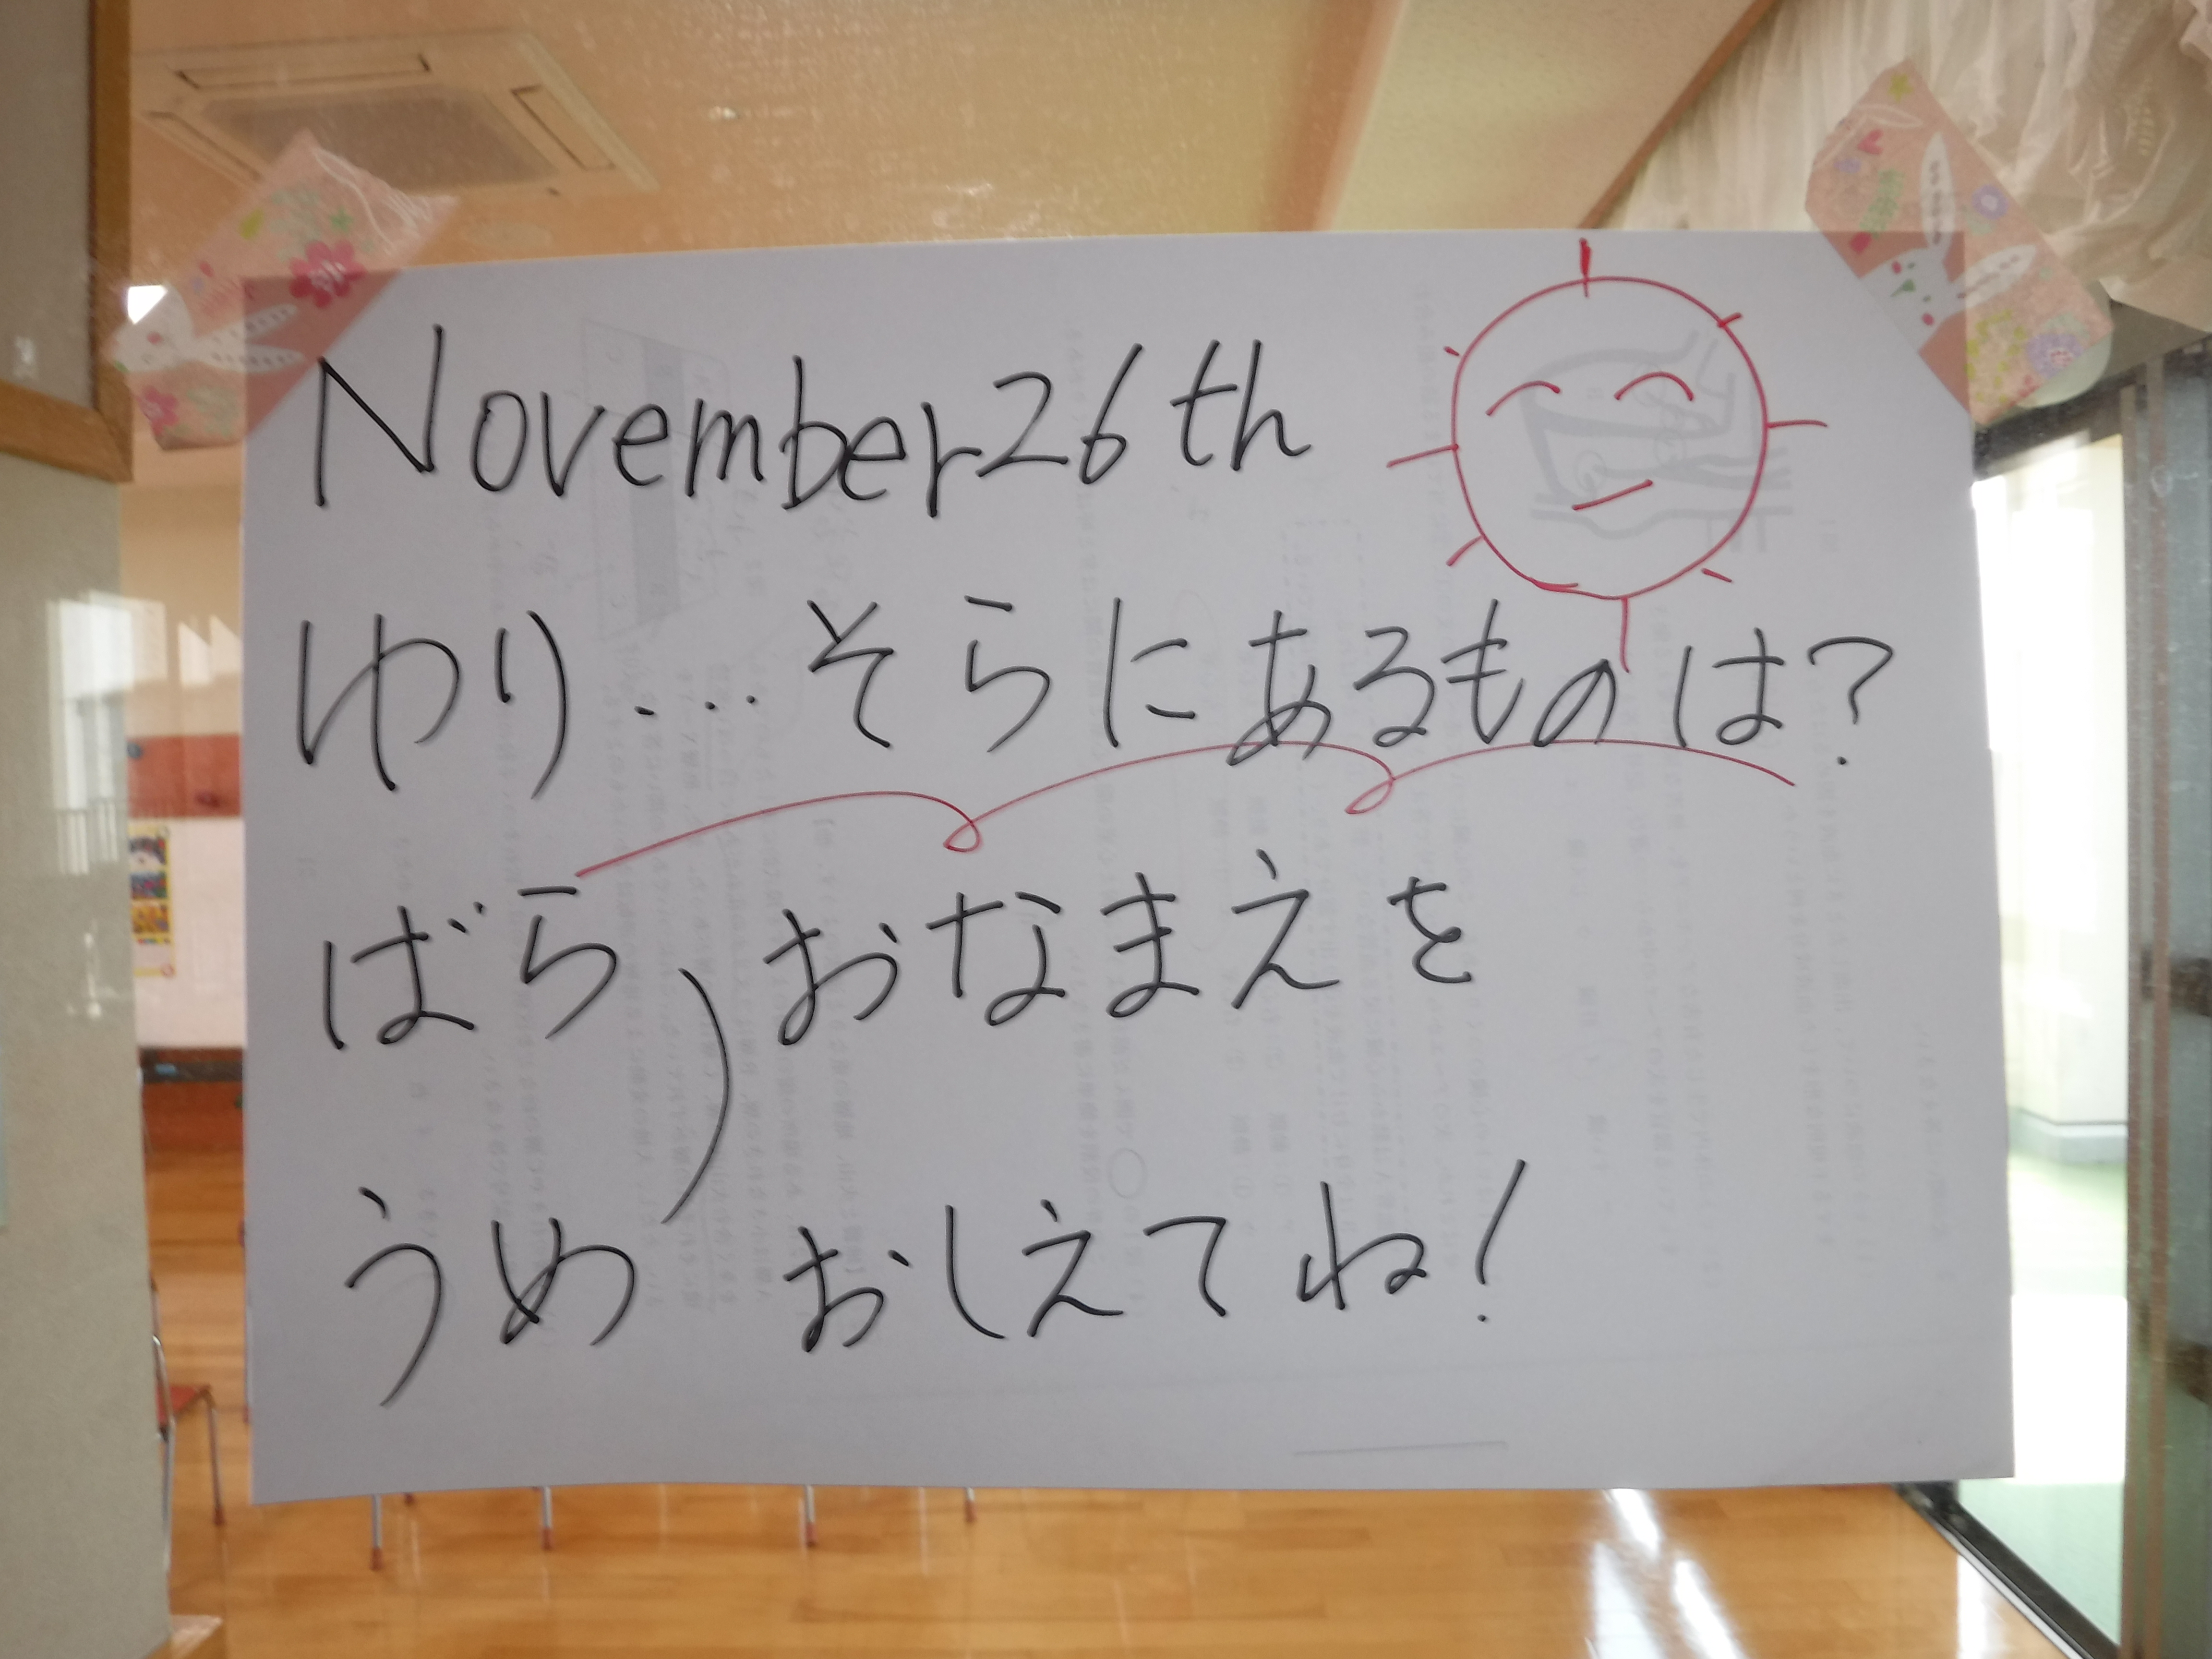 November 26th
ゆり…そらにあるものは?
ばら
うめ
) おなまえを
おしえてね!